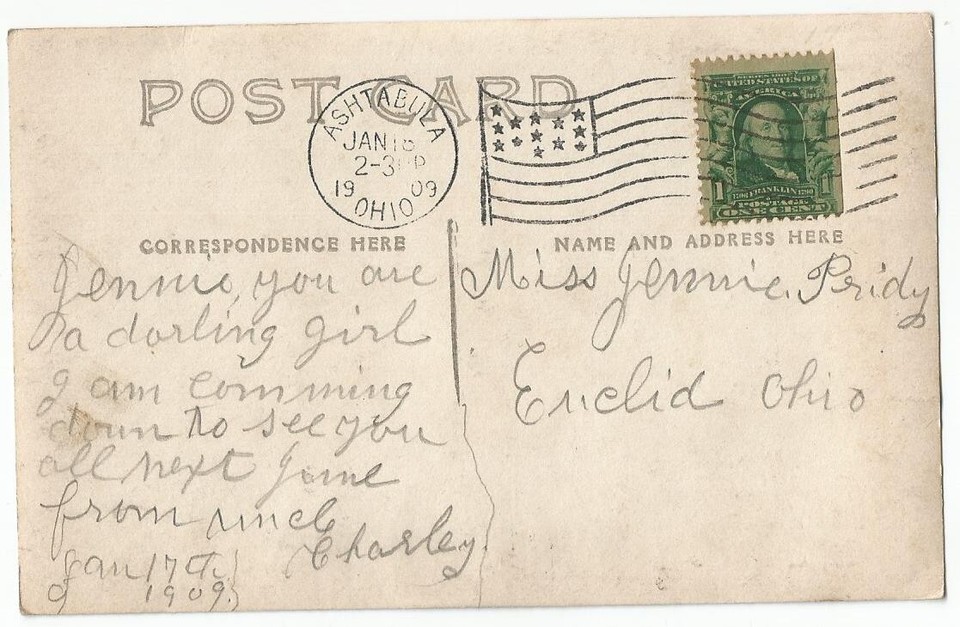 POST CARD
ASHTABULA
JAN 18
2-3 P
1909
OHIO
SERIES 1902
UNITED STATES OF
AMERICA
1 FRANKLIN 1
POSTAGE
ONE CENT
CORRESPONDENCE HERE
Jennie, you are
a darling girl
I am comming
down to see you
all next June
from uncl
Charley
Jan 17th
1909
NAME AND ADDRESS HERE
Miss Jennie. Pridy
Euclid Ohio